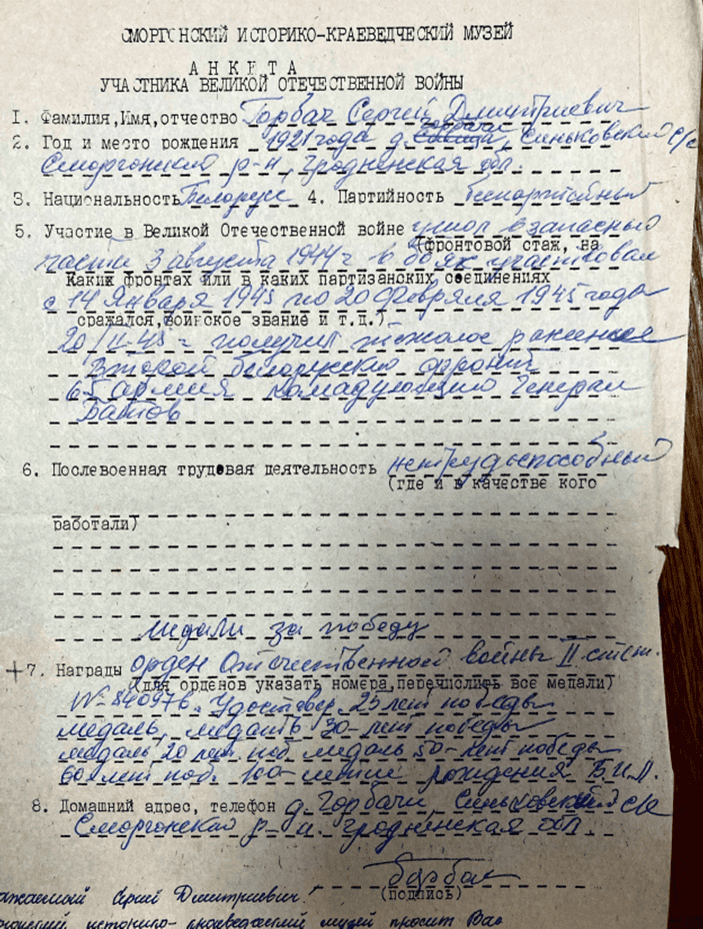 СМОРГОНСКИЙ ИСТОРИКО-КРАЕВЕДЧЕСКИЙ МУЗЕЙ
АНКЕТА
УЧАСТНИКА ВЕЛИКОЙ ОТЕЧЕСТВЕННОЙ ВОЙНЫ
I. Фамилия,Имя,отчество Горбач Сергей Дмитриевич
2. Год и место рождения 1921 года д. Горбачи, Синьковский с/с
Сморгонский р-н, Гродненская обл.
3. Национальность Белорус 4. Партийность беспартийный
5. Участие в Великой Отечественной войне ушол в запасные
(фронтовой стаж, на
части 3 августа 1944 г в боях участвовал
Каких фронтах или в каких партизанских соединениях
с 14 Января 1945 по 20 Февраля 1945 года
сражался,воинское звание и т.д.)
20/II-45 г получил тяжолое ранение
Второй белоруский фронт
65 армия командующий Генерал
Батов
6. Послевоенная трудовая деятельность нетрудыспособный
(где и в качестве кого
работали)
медали за победу
+7. Награды орден Отечественной войны II степ.
(для орденов указать номера,перечислить все медали)
№ 840976. Удостовер. 25 лет победы
медаль, медаль 30-лет победы
медаль 20 лет поб медаль 50-лет победы
60 лет поб. 100-летие рождения В.И.Л.
8. Домашний адрес, телефон д. Горбачи, Синьковский с/с
Сморгонский р-н. Гродненская обл
(подпись)
Сергей Дмитриевич!
историко-краеведческий музей просит Вас